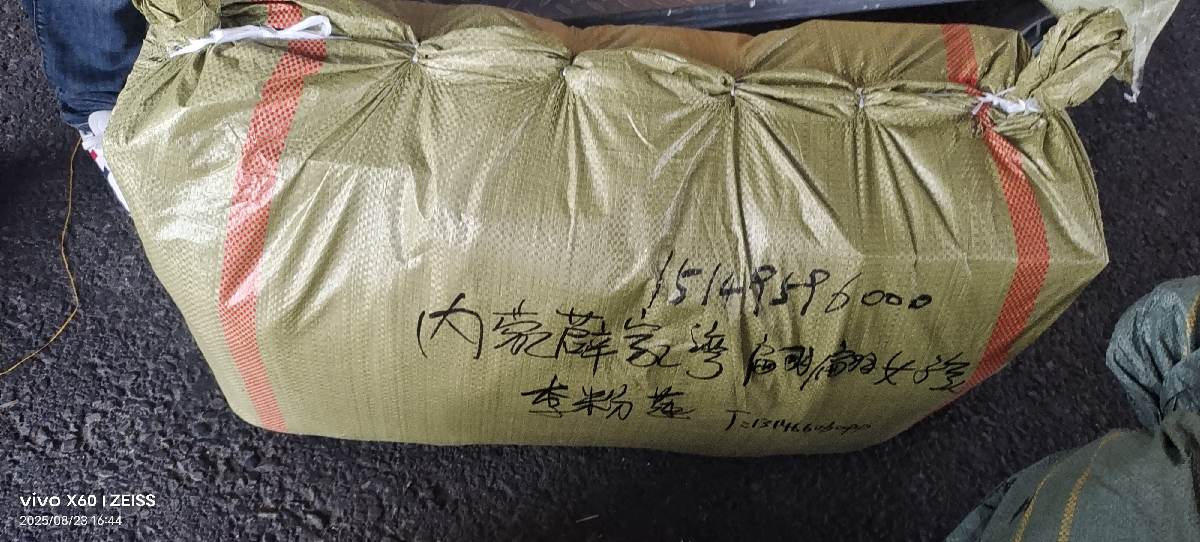 15149596000
内蒙薛家湾翩翩女孩
李粉莲
vivo X60 | ZEISS
2025/08/23 16:44